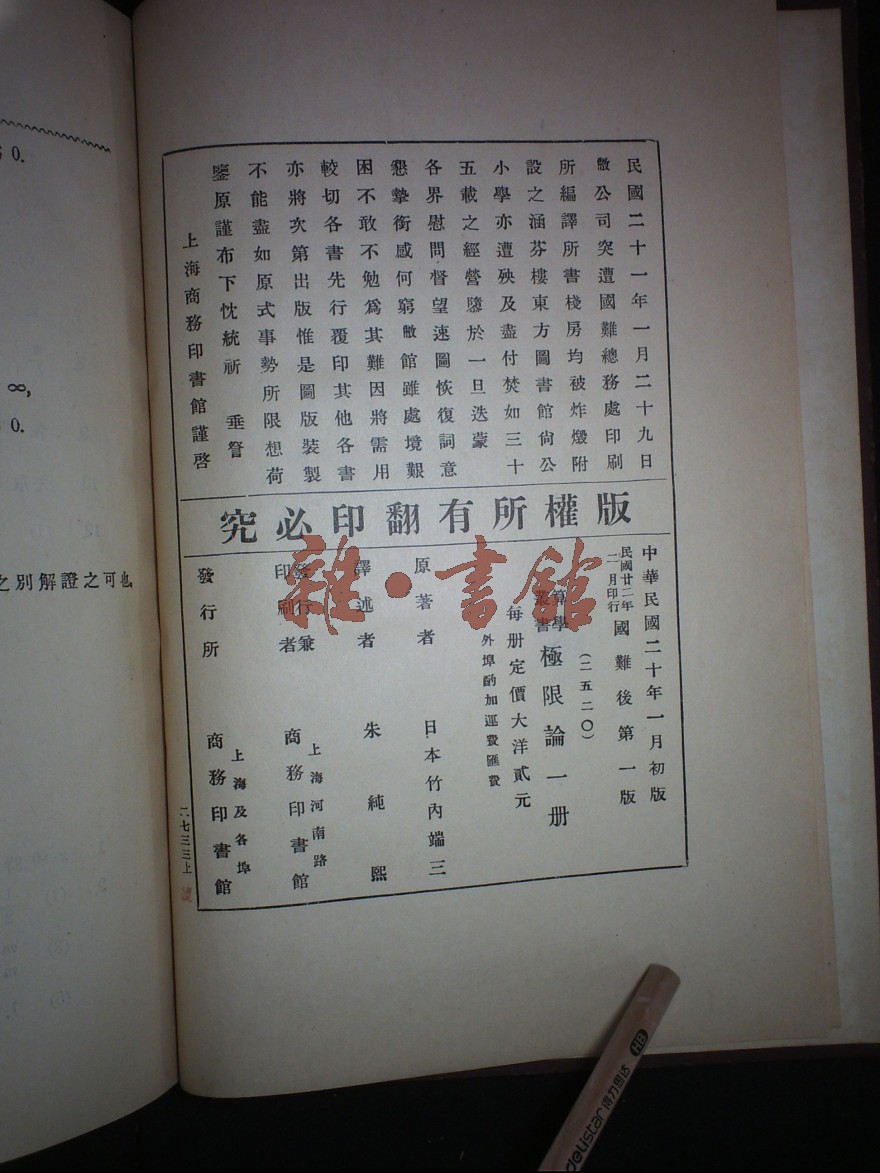 民國二十一年一月二十九日
敝公司突遭國難總務處印刷
所編譯所書棧房均被炸燬附
設之涵芬樓東方圖書館尙公
小學亦遭殃及盡付焚如三十
五載之經營隳於一旦迭蒙
各界慰問督望速圖恢復詞意
懇摯銜感何窮敝館雖處境艱
困不敢不勉爲其難因將需用
較切各書先行覆印其他各書
亦將次第出版惟是圖版裝製
不能盡如原式事勢所限想荷
鑒原謹布下忱統祈 垂詧
上海商務印書館謹啓
版權所有翻印必究
中華民國二十年一月初版
民國廿二年二月印行 國難後第一版
(二五二〇)
算學叢書 極限論一册
每册定價大洋貳元
外埠酌加運費匯費
原著者 日本竹內端三
譯述者 朱純熙
發行兼印刷者 上海河南路 商務印書館
發行所 上海及各埠 商務印書館
二七三三上
雜·書館
0.
∞,
0.
之別解證之可也
delistar 得力思达 HB